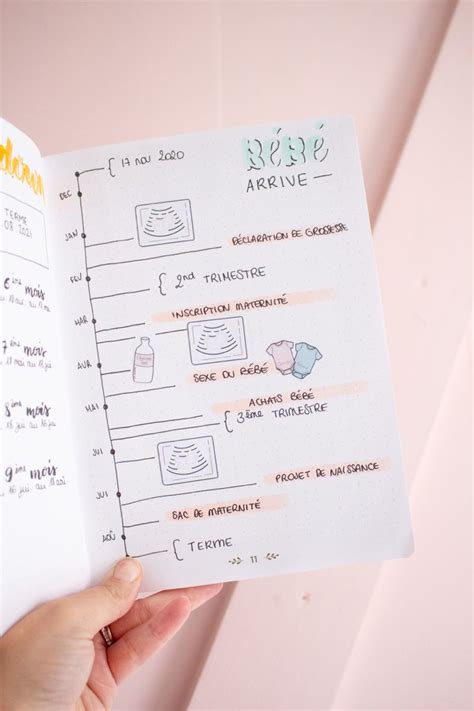 TERME
08.2021
6ème mois
7ème mois
8ème mois
9ème mois
BÉBÉ
ARRIVE —
17 NOV 2020
DEC
JAN
DÉCLARATION DE GROSSESSE
FEV
2nd TRIMESTRE
MAR
INSCRIPTION MATERNITÉ
AVR
SEXE DU BÉBÉ
MAI
ACHATS BÉBÉ
3ème TRIMESTRE
JUI
PROJET DE NAISSANCE
JUI
SAC DE MATERNITÉ
AOÛ
TERME
11